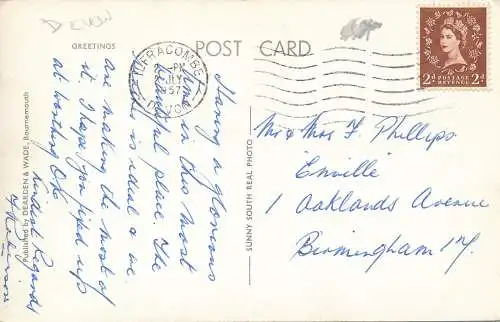 DEVON
GREETINGS
POST CARD
ILFRACOMBE
PM
JLY
57
DEVON
POSTAGE
REVENUE
2d 2d
Having a glorious
time in this most
beautiful place. The
weather is ideal & we
are making the most of
it. I hope you fixed up
at Worthing O.K.
Kindest Regards
Published by DEARDEN & WADE, Bournemouth
SUNNY SOUTH REAL PHOTO
Mr & Mrs F. Phillips
Enville
1 Oaklands Avenue
Birmingham 17.